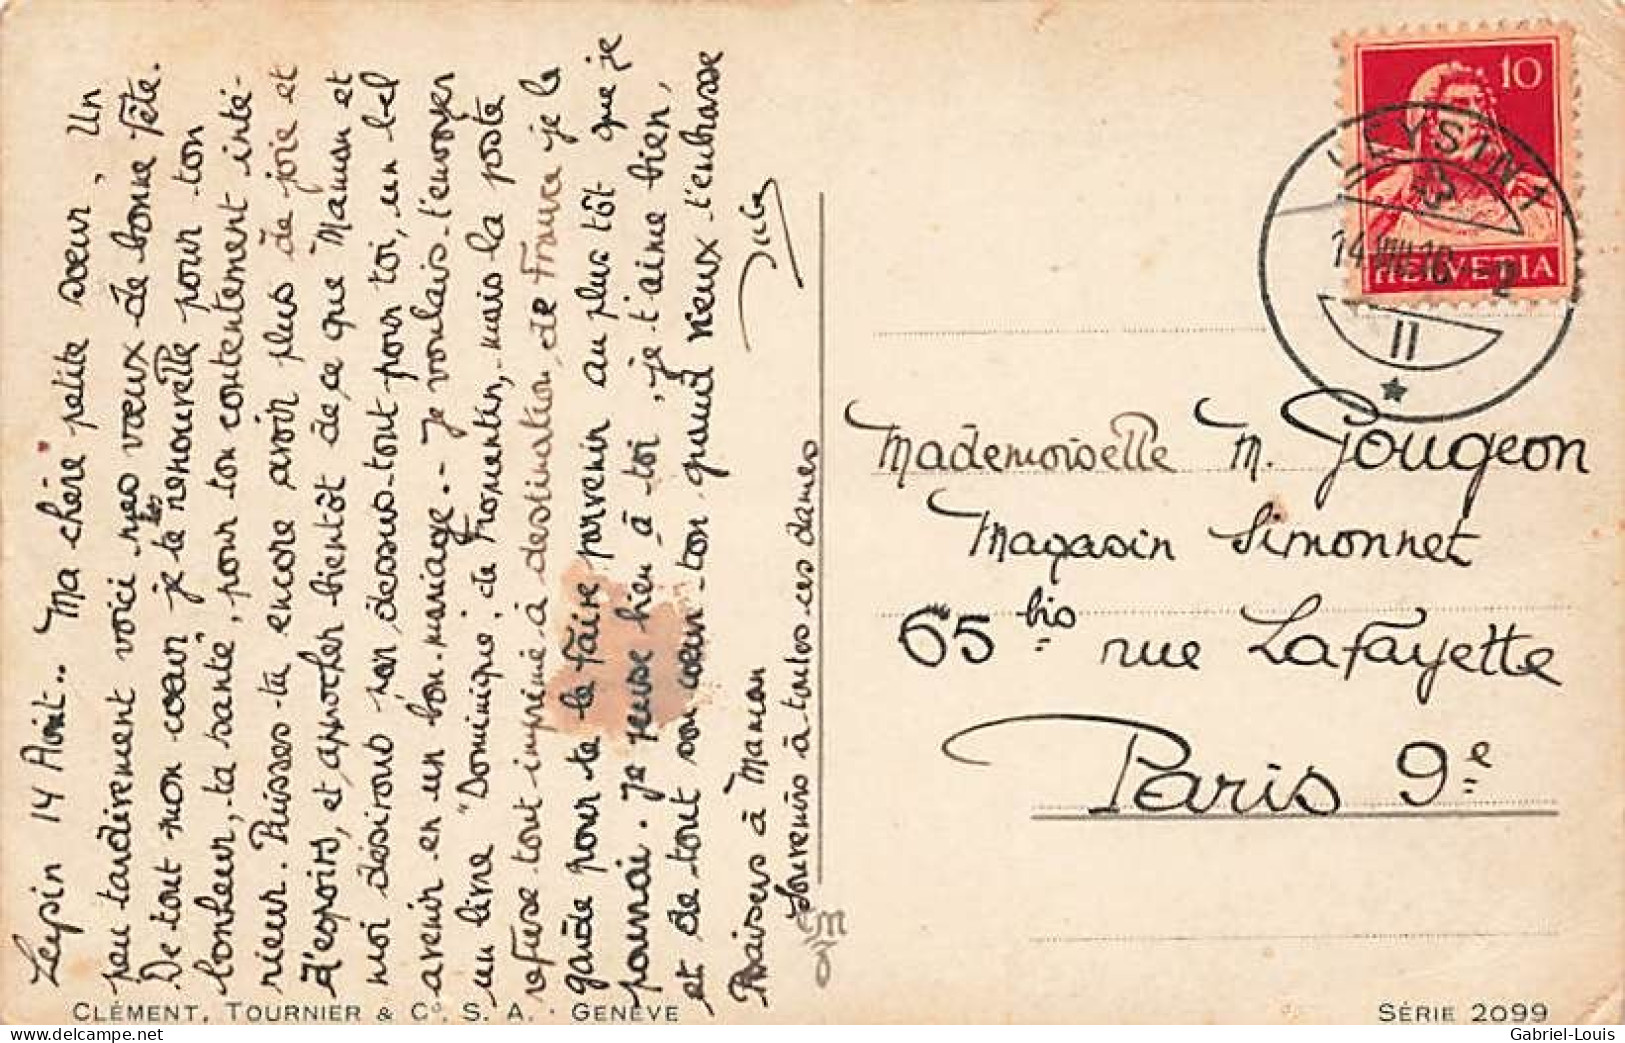 Leysin 14 Août.. Ma chère petite sœur, Un
peu tardivement voici mes vœux de bonne fête.
De tout mon cœur je te les renouvelle pour ton
bonheur, ta santé, pour ton contentement inté-
rieur. Puisses-tu encore avoir plus de joie et
d'espoirs, et approcher bientôt de ce que Maman et
moi désirons par dessus-tout pour toi, un bel
avenir en un bon mariage.- Je voulais t'envoyer
un livre "Dominique" de Fromentin, mais la poste
refuse tout imprimé à destination de France je le
garde pour te le faire parvenir au plus tôt que je
pourrai. Je pense bien à toi, je t'aime bien,
et de tout son cœur ton grand vieux t'embrasse
Baisers à Maman
Souvenirs à toutes ces dames
Mademoiselle M. Gougeon
Magasin Simonnet
65 bis rue Lafayette
Paris 9e
10
HELVETIA
LEYSIN 1
14.VIII.16
II
CLÉMENT, TOURNIER & Co. S. A. · GENÈVE
SÉRIE 2099
Gabriel-Louis